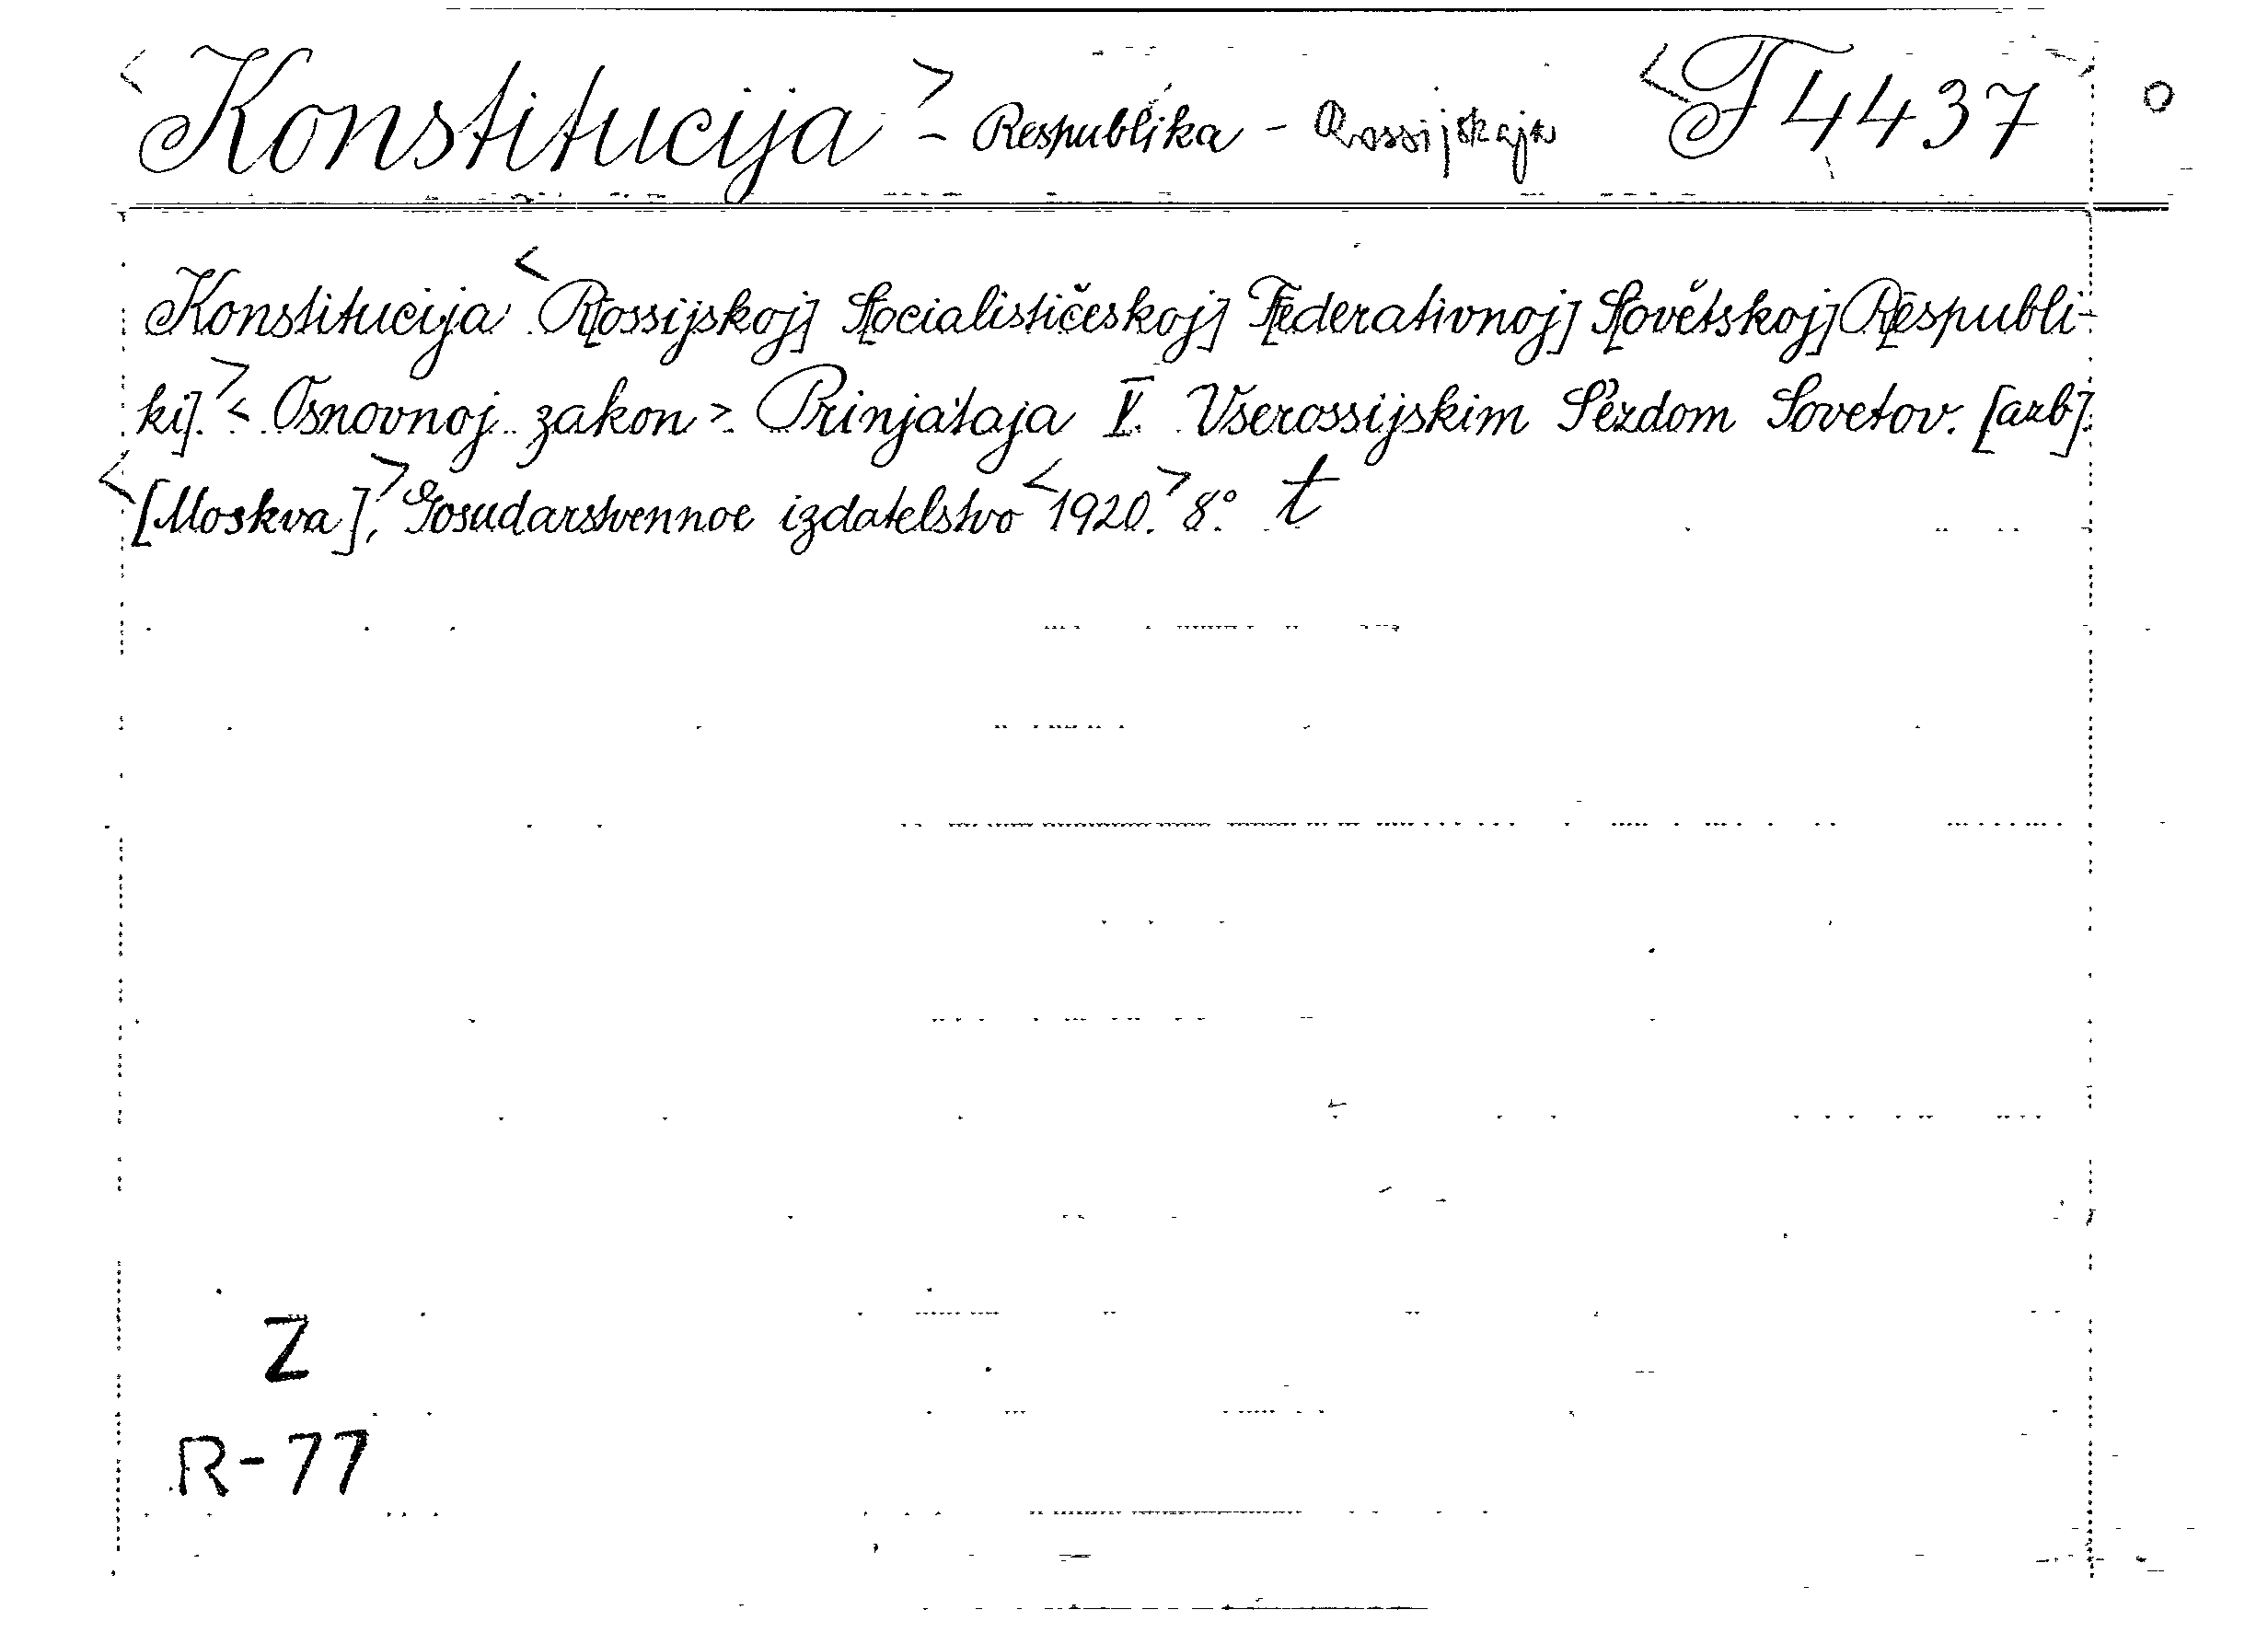 <Konstitucija> - Respublika - Rossijskaja <F 4437
Konstitucija <R[ossijskoj] S[ocialističeskoj] F[ederativnoj] S[ovětskoj] R[espubli-
ki].> <Osnovnoj zakon>. Prinjataja V. Vserossijskim S'ězdom Sovetov. [azb].
<[Moskva],> Gosudarstvennoe izdatelstvo <1920.> 8°. t
Z
R-77